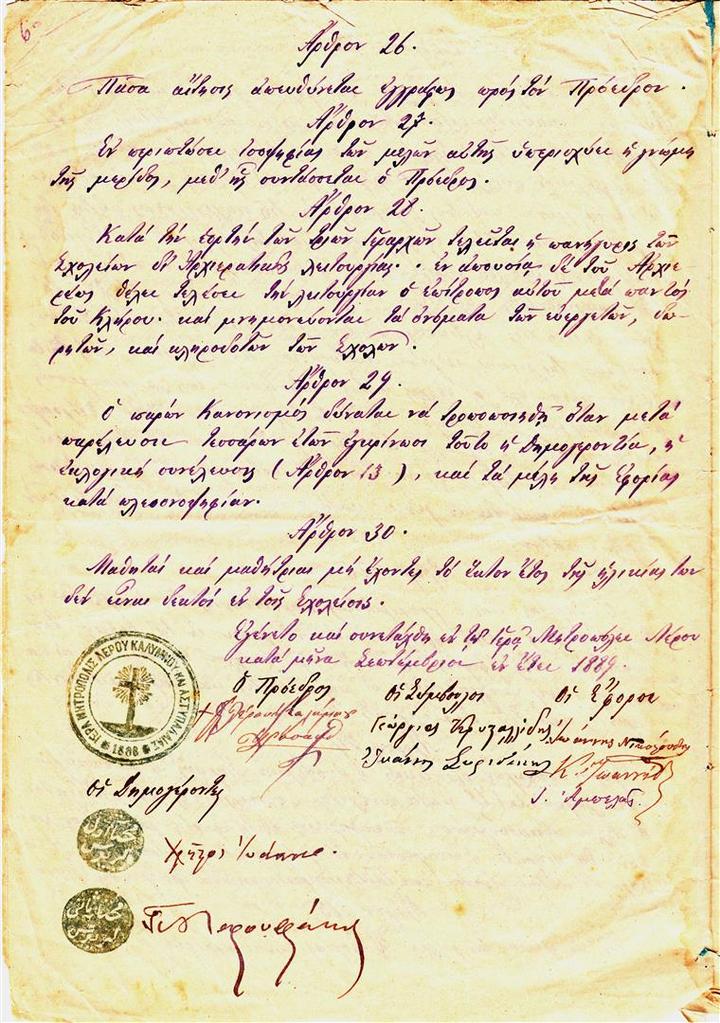 6
Ἄρθρον 26.
Πᾶσα αἴτησις ἀπευθύνεται ἐγγράφως πρὸς τὸν Πρόεδρον.
Ἄρθρον 27.
Ἐν περιπτώσει ἰσοψηφίας τῶν μελῶν αὐτῆς ὑπερισχύει ἡ γνώμη
τῆς μερίδος, μεθ' ἧς συντάσσεται ὁ Πρόεδρος.
Ἄρθρον 28.
Κατὰ τὴν ἑορτὴν τῶν τριῶν Ἱεραρχῶν τελεῖται ἡ πανήγυρις τῶν
Σχολείων δι' Ἀρχιερατικῆς λειτουργίας. ἐν ἀπουσίᾳ δὲ τοῦ Ἀρχιε
ρέως θέλει τελέσει τὴν λειτουργίαν ὁ ἐπίτροπος αὐτοῦ μετὰ παντὸς
τοῦ Κλήρου. καὶ μνημονεύονται τὰ ὀνόματα τῶν εὐεργετῶν, δω-
ρητῶν, καὶ κληροδοτῶν τῶν Σχολῶν.
Ἄρθρον 29.
Ὁ παρὼν Κανονισμὸς δύναται νὰ τροποποιηθῇ ὅταν μετὰ
παρέλευσιν τεσσάρων ἐτῶν ἐγκρίνωσι τοῦτο ἡ Δημογεροντία, ἡ
ἐκλογικὴ συνέλευσις (Ἄρθρον 13), καὶ τὰ μέλη τῆς Ἐφορίας
κατὰ πλειονοψηφίαν.
Ἄρθρον 30.
Μαθηταὶ καὶ μαθήτριαι μὴ ἔχοντες τὸ ἕκτον ἔτος τῆς ἡλικίας των
δὲν εἶναι δεκτοὶ ἐν τοῖς Σχολείοις.
Ἐγένετο καὶ συνετάχθη ἐν τῇ Ἱερᾷ Μητροπόλει Λέρου
κατὰ μῆνα Σεπτέμβριον ἐν ἔτει 1889.
ΙΕΡΑ ΜΗΤΡΟΠΟΛΙΣ ΛΕΡΟΥ ΚΑΛΥΜΝΟΥ ΚΑΙ ΑΣΤΥΠΑΛΑΙΑΣ
1888
Ὁ Πρόεδρος
Οἱ Σύμβουλοι
Οἱ Ἔφοροι
Γεώργιος Κρυσαλλίδης
Ἰωάννης
Ἰωάννης
Κ. Ἰωαννίδ
Ι. Ἀμπελᾶς
Οἱ Δημογέροντες